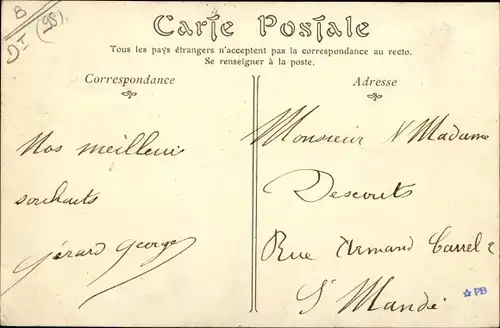 B
DT (95)
Carte Postale
Tous les pays étrangers n'acceptent pas la correspondance au recto.
Se renseigner à la poste.
Correspondance
Nos meilleurs
souhaits
Gérard Georges
Adresse
Monsieur & Madame
Descouts
Rue Armand Carrel 2
St Mandé
☆PB